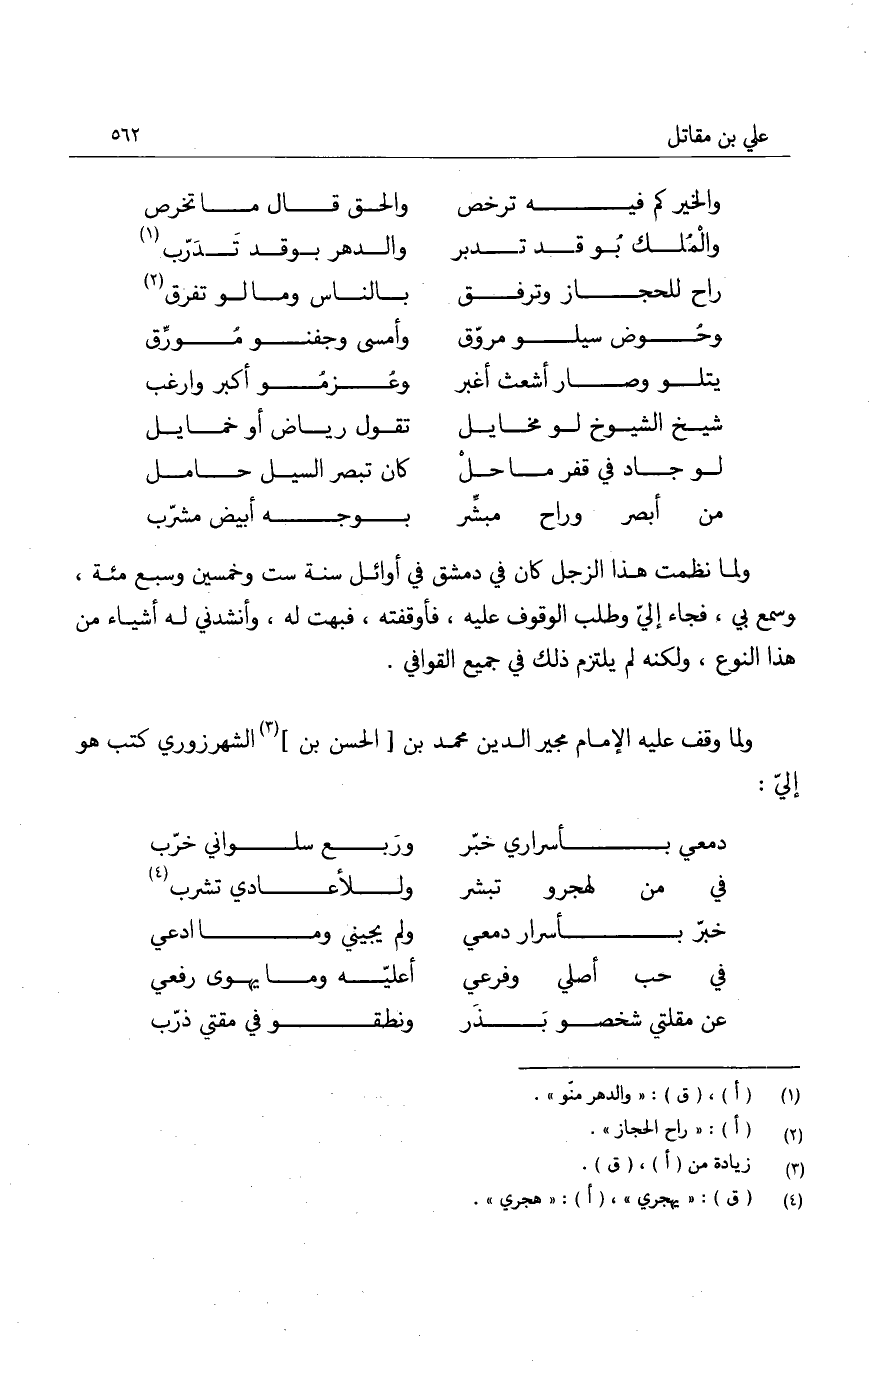 علي بن مقاتل ٥٦٢
والخير كم فيـه ترخص والحـق قـال مـا تخرص
والْمُلـك بُـو قـد تـدبر والـدهر بـوقـد تَـدَرّب(١)
راح للحجـاز وترفـق بـالنـاس ومـا لـو تفرق(٢)
وحُـوض سيلـو مروّق وأمسى وجفنـو مُـورِّق
يتلـو وصـار أشعث أغبر وعُـزمُـو أكبر وارغب
شيـخ الشيـوخ لـو مخـايـل تقـول ريـاض أو خمـايـل
لـو جـاد في قفر مـاحـلْ كان تبصر السيـل حـامـل
من أبصر وراح مبشِّر بـوجـه أبيض مشرّب
ولما نظمت هـذا الزجل كان في دمشق في أوائـل سنـة ست وخمسين وسبـع مئـة ،
وسمع بي ، فجاء إليّ وطلب الوقوف عليه ، فأوقفته ، فبهت له ، وأنشدني لـه أشيـاء من
هذا النوع ، ولكنه لم يلتزم ذلك في جميع القوافي .
ولما وقف عليه الإمـام مجير الـدين محمـد بن [ الحسن بن ](٣) الشهرزوري كتب هو
إليّ :
دمعي بـأسراري خبّر ورَبـع سلـواني خرّب
في من لهجرو تبشر ولـلأعـادي تشرب(٤)
خبرّ بـأسرار دمعي ولم يجيني ومـا ادعي
في حب أصلي وفرعي أعليّـه ومـا يهـوى رفعي
عن مقلتي شخصـو بَـذَر ونطقـو في مقتي ذرّب
(١) ( أ ) ، ( ق ) : « والدهر منّو » .
(٢) ( أ ) : « راح الحجاز » .
(٣) زيادة من ( أ ) ، ( ق ) .
(٤) ( ق ) : « يهجري » ، ( أ ) : « هجري » .